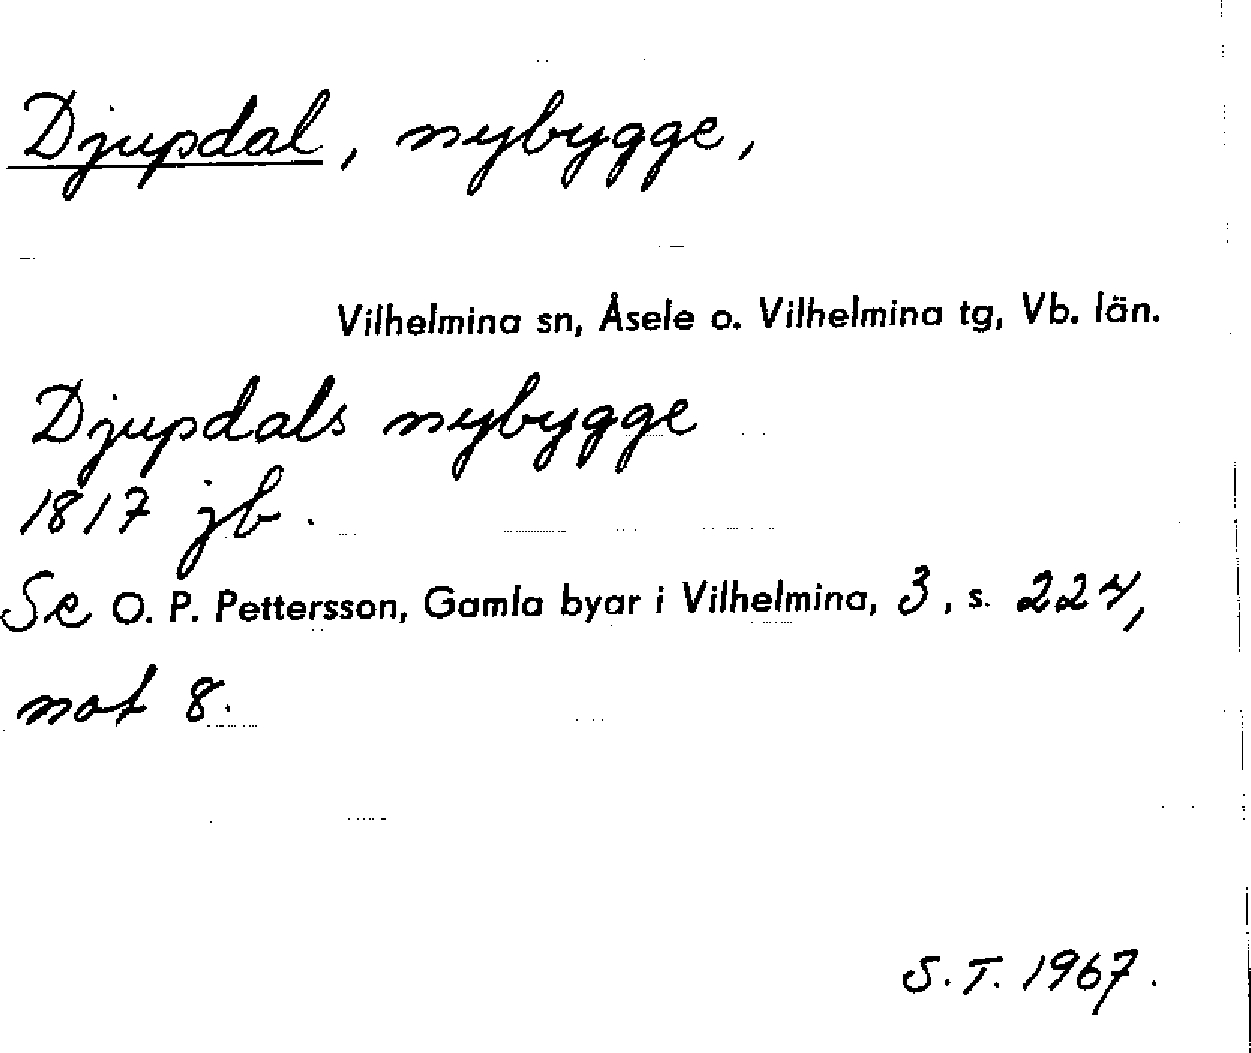 Djupdal, nybygge,
Vilhelmina sn, Åsele o. Vilhelmina tg, Vb. län.
Djupdals nybygge
1817 jb.
Se O. P. Pettersson, Gamla byar i Vilhelmina, 3, s. 224,
not 8.
S.T. 1967.